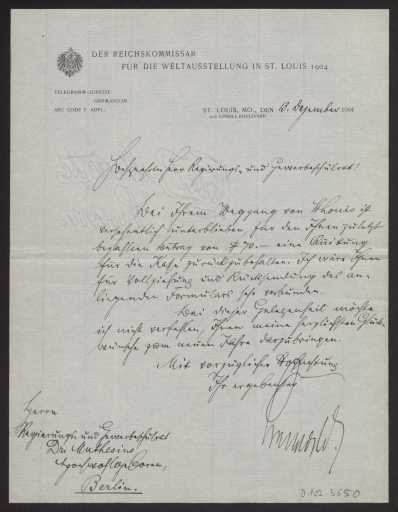 DER REICHSKOMMISSAR
FÜR DIE WELTAUSSTELLUNG IN ST. LOUIS 1904
TELEGRAMM-ADRESSE:
GERMANICUM
ABC CODE 5. AUFL.
ST. LOUIS, MO., DEN Dezember 1904
Hochverehrter Herr Regierungs- und Gewerbeschulrat!
Bei Ihrem Weggang von St. Louis ist
versehentlich unterblieben, für den Ihnen zuletzt
bezahlten Betrag von eine Quittung
für die Kasse zurückzubehalten. Ich wäre Ihnen
für Vollziehung und Rücksendung des an-
liegenden Formulars sehr verbunden.
Bei dieser Gelegenheit möchte
ich nicht verfehlen, Ihnen meine herzlichsten Glück-
wünsche zum neuen Jahre darzubringen.
Mit vorzüglicher Hochachtung
Ihr ergebenster
Herrn
Regierungs- und Gewerbeschulrat
Dr. Muthesius
Hochwohlgeboren,
Berlin.
D 102-3650